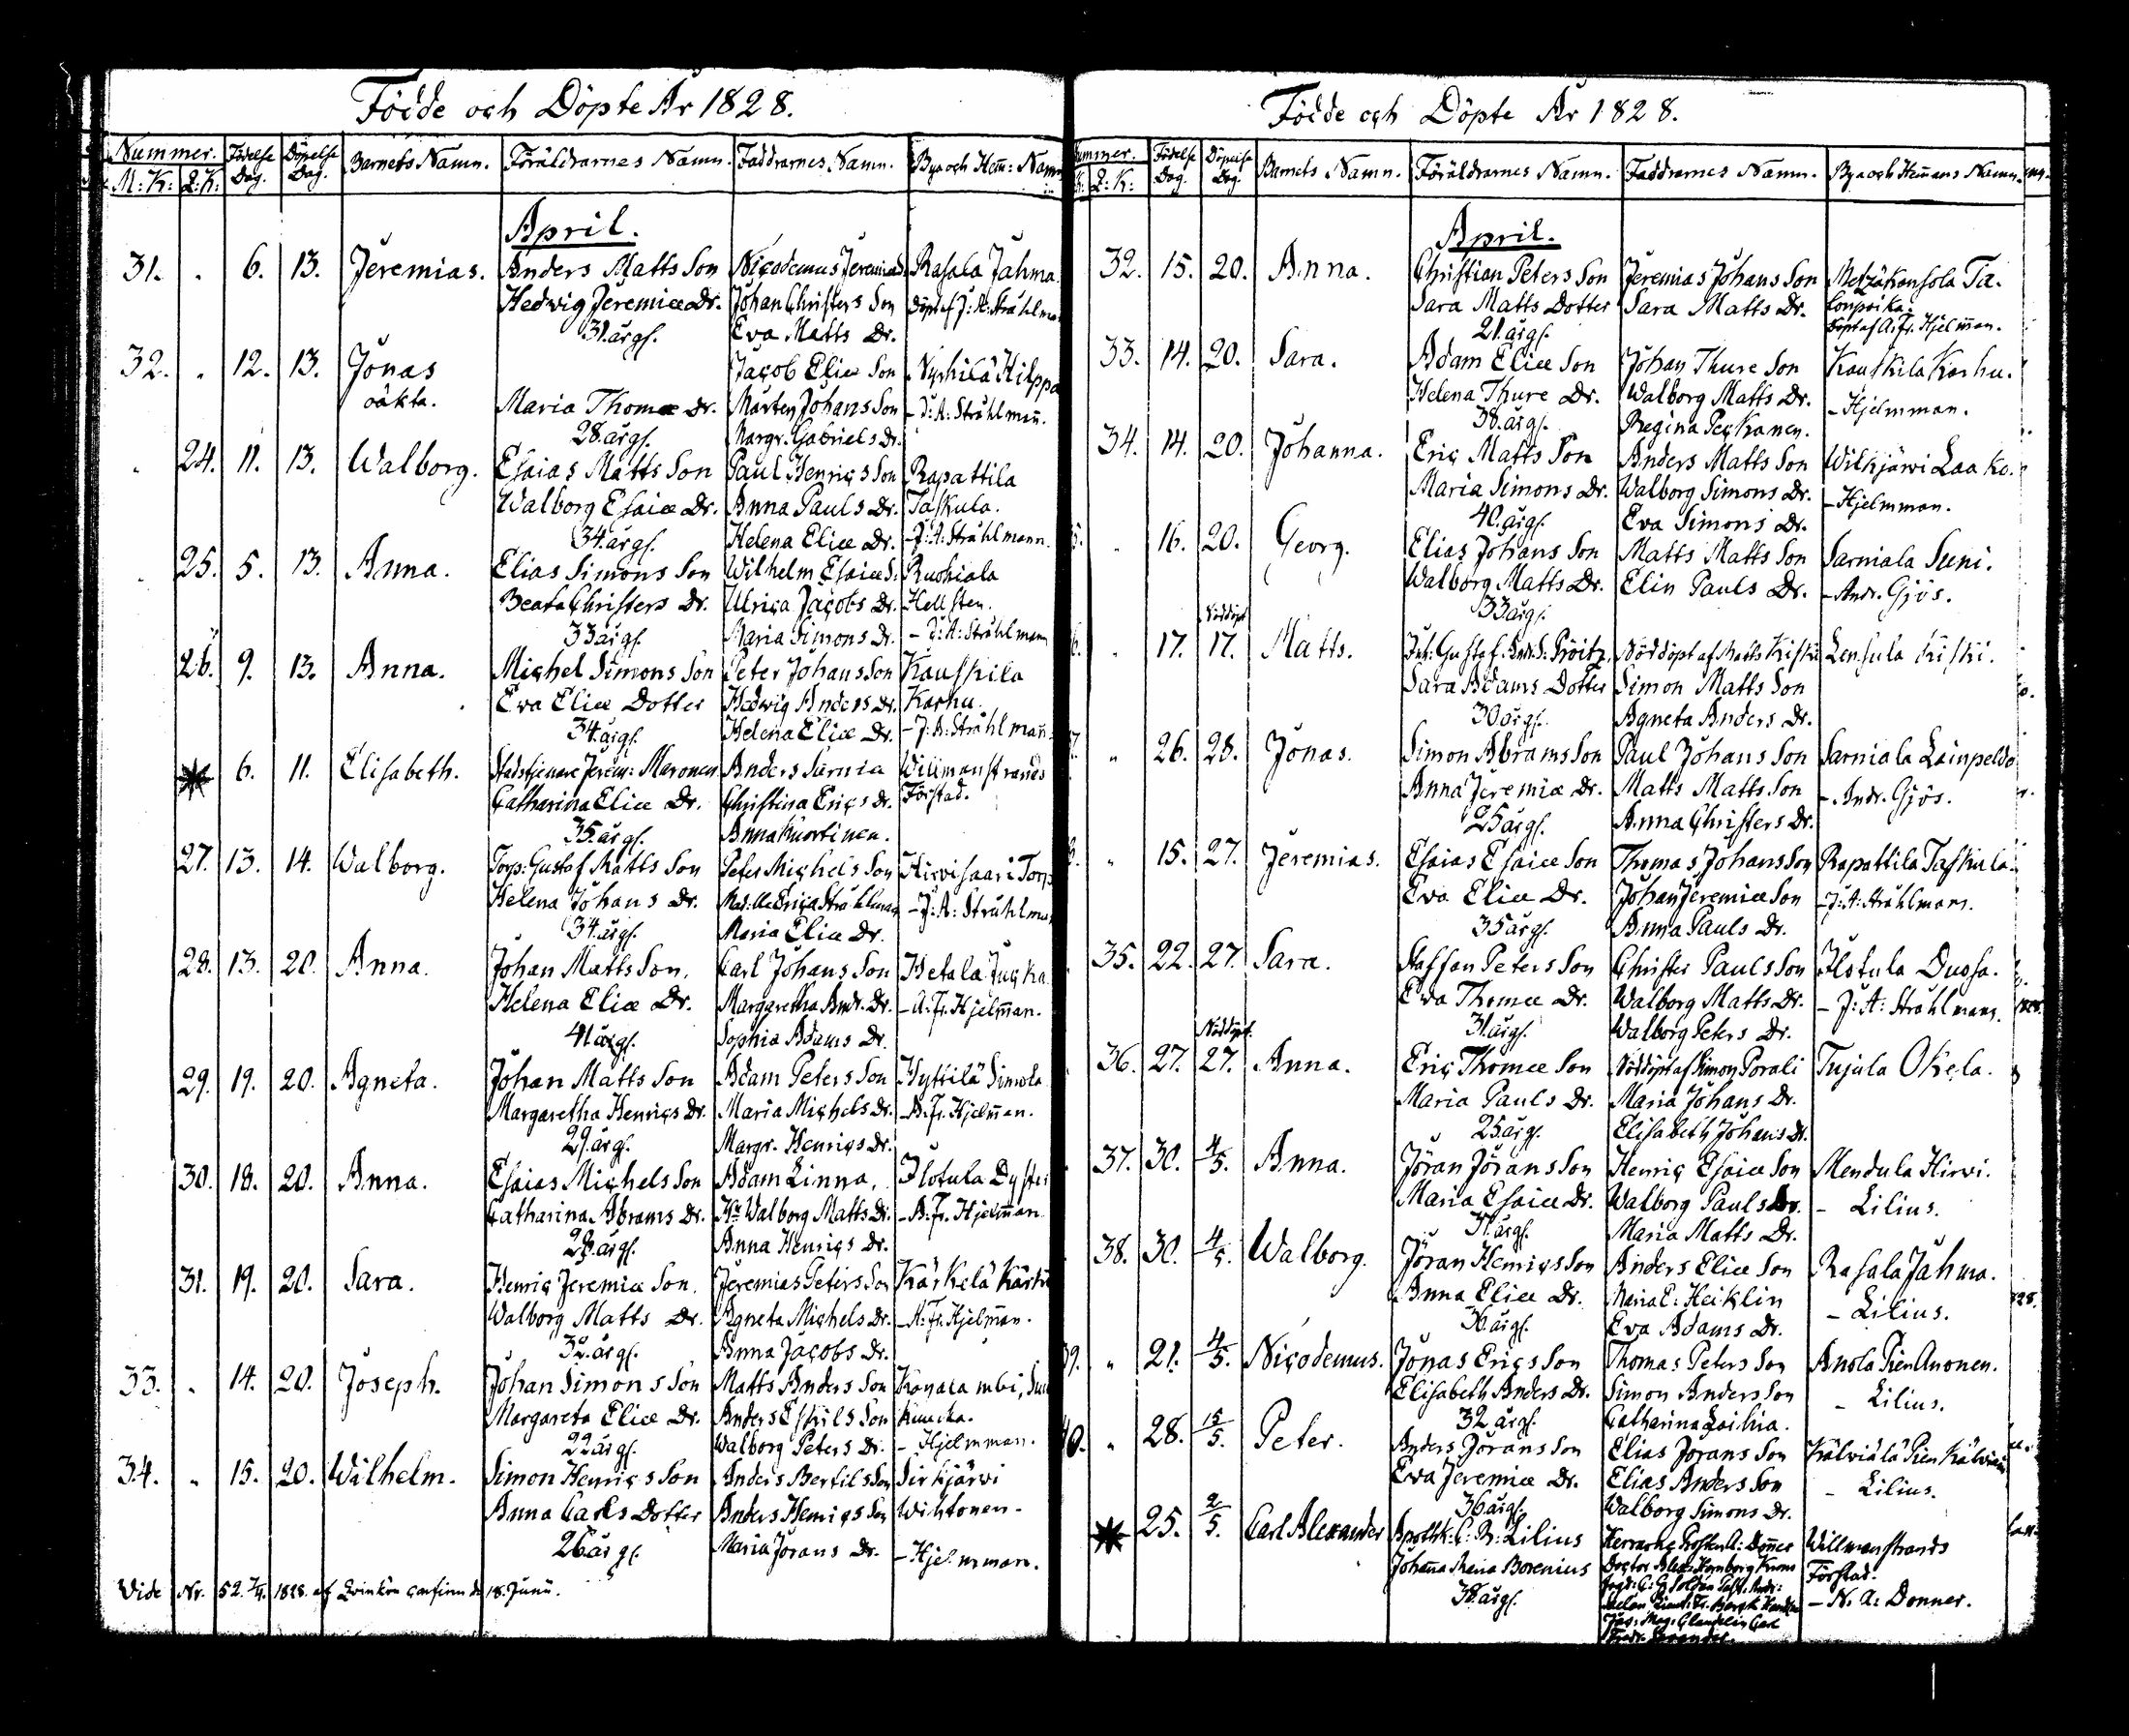 Födde och Döpte År 1828.
Nummer. Födelse Dag. Döpelse Dag. Barnets Namn. Föräldrarnes Namn. Faddrarnes Namn. By och Hem: Namn
M: K: Q: K:
April.
31. . 6. 13. Jeremias. Anders Matts Son Nicodemus Jeremiæ Rasala Jahma.
Hedwig Jeremiæ Dr. Johan Christers Son Döpt af J: A: Stråhlman
31. årgs. Eva Matts Dr.
32. . 12. 13. Jonas Jacob Eliæ Son Nyrhilä Hilppa
oäkta. Maria Thomæ Dr. Mårten Johans Son - J: A: Stråhlman.
28. årgs. Margr. Gabriels Dr.
. 24. 11. 13. Walborg. Esaias Matts Son Paul Henrics Son Rapattila
Walborg Esaiæ Dr. Anna Pauls Dr. Taskula.
34. årgs. Helena Eliæ Dr. - J: A: Stråhlmann.
. 25. 5. 13. Anna. Elias Simons Son Wilhelm Esaiæ S. Ruohiala
Beata Christers Dr. Ulrica Jacobs Dr. Hellsten.
33 årgs. Maria Simons Dr. - J: A: Stråhlmann
26. 9. 13. Anna. Michel Simons Son Peter Johans Son Kauskila
Eva Eliæ Dotter Hedwig Anders Dr. Karhu.
34. årgs. Helena Eliæ Dr. - J: A: Stråhlman.
6. 11. Elisabeth. Stadstjenare Jerem: Maronen Anders Sarnia Willmanstrands
Catharina Eliæ Dr. Christina Erics Dr. Förstad.
35. årgs. Anna Kuortinen.
27. 13. 14. Walborg. Torp: Gustaf Matts Son Peter Michels Son Hirvisaari Torp
Helena Johans Dr. Mad:lle Erica Stråhlman - J: A: Stråhlman
34. årgs. Maria Eliæ Dr.
28. 13. 20. Anna. Johan Matts Son. Carl Johans Son Hetala Jucka
Helena Eliæ Dr. Margaretha Andr. Dr. - A. Fr. Hjelman.
41 årgs. Sophia Adams Dr.
29. 19. 20. Agneta. Johan Matts Son Adam Peters Son Hyttilä Simola
Margaretha Henrics Dr. Maria Michels Dr. - A. Fr. Hjelman.
29. årgs. Margr. Henrics Dr.
30. 18. 20. Anna. Esaias Michels Son Adam Linna, Ilotula Dyster
Catharina Abrams Dr. Hr Walborg Matts Dr. - A. Fr. Hjelman
årgs. Anna Henrics Dr.
31. 19. 20. Sara. Henric Jeremiæ Son. Jeremias Peters Son Kärkelä Kärki
Walborg Matts Dr. Agneta Michels Dr. - A. Fr. Hjelman.
32. årgs. Anna Jacobs Dr.
33. . 14. 20. Joseph. Johan Simons Son Matts Anders Son
Margareta Eliæ Dr. Anders Eskils Son
22 årgs. Walborg Peters Dr. - Hjelmman.
34. . 15. 20. Wilhelm. Simon Henrics Son Anders Bertils Son Sirkjärwi
Anna Carls Dotter Anders Henrics Son Wihtonen.
26 årgs. Maria Jörans Dr. - Hjelmman.
Vide Nr. 52. 1828. af 18. Junii.
Födde och Döpte År 1828.
Nummer. Födelse Dag. Döpelse Dag. Barnets Namn. Föräldrarnes Namn. Faddrarnes Namn. By och Hemans Namn.
K: Q: K:
April.
32. 15. 20. Anna. Christian Peters Son Jeremias Johans Son Metzäkansola Ta.
Sara Matts Dotter Sara Matts Dr.
21. årgs. Döpt af A. Fr. Hjelman.
33. 14. 20. Sara. Adam Eliæ Son Johan Thure Son Kauskila Karhu.
Helena Thure Dr. Walborg Matts Dr. - Hjelmman.
38. årgs. Regina Peckanen.
34. 14. 20. Johanna. Eric Matts Son Anders Matts Son Wilkjärwi Laako.
Maria Simons Dr. Walborg Simons Dr. - Hjelmman.
40. årgs. Eva Simons Dr.
5. . 16. 20. Georg. Elias Johans Son Matts Matts Son Sarniala Suni.
Walborg Matts Dr. Elin Pauls Dr. - Andr. Gjös.
33 årgs.
Nöddöpt
6. . 17. 17. Matts. Gustaf Pröitz. Nöddöpt af Matts Kiski Lensula Kiski.
Sara Adams Dotter Simon Matts Son
30 årgs. Agneta Anders Dr.
7. " 26. 28. Jonas. Simon Abrams Son Paul Johans Son Sarniala Lainpeldo
Anna Jeremiæ Dr. Matts Matts Son - Andr. Gjös.
25 årgs. Anna Christers Dr.
8. " 15. 27. Jeremias. Esaias Esaiæ Son Thomas Johans Son Rapattila Taskula.
Eva Eliæ Dr. Johan Jeremiæ Son - J: A: Stråhlmann.
35 årgs. Anna Pauls Dr.
35. 22. 27. Sara. Staffan Peters Son Christer Pauls Son Ilotula Dussa.
Eva Thomæ Dr. Walborg Matts Dr. - J: A: Stråhlmann.
31 årgs. Walborg Peters Dr.
Nöddöpt.
36. 27. 27. Anna. Eric Thomæ Son Nöddöpt af Simon Porali Tujula Okela.
Maria Pauls Dr. Maria Johans Dr.
25 årgs. Elisabeth Johans Dr.
37. 30. 4/5. Anna. Jöran Jörans Son Henric Esaiæ Son Mendula Hirwi.
Maria Esaiæ Dr. Walborg Pauls Dr. - Lilius.
31. årgs. Maria Matts Dr.
38. 30. 4/5. Walborg. Jöran Henrics Son Anders Eliæ Son Rasala Jahma.
Anna Eliæ Dr. Maria E: Heiklin - Lilius.
36. årgs. Eva Adams Dr.
39. " 21. 4/5. Nicodemus. Jonas Erics Son Thomas Peters Son Anola Pien Anonen.
Elisabeth Anders Dr. Simon Anders Son - Lilius.
32 årgs. Catharina Laihia.
40. " 28. 15/5. Peter. Anders Jörans Son Elias Jörans Son Kälviälä Pien Kälviäin
Eva Jeremiæ Dr. Elias Anders Son - Lilius.
36 årgs. Walborg Simons Dr.
25. 2/5. Carl Alexander Apothk: C: R: Lilius Willmanstrands
Johana Maria Borenius Förstad.
38. årgs. - N. A: Donner.